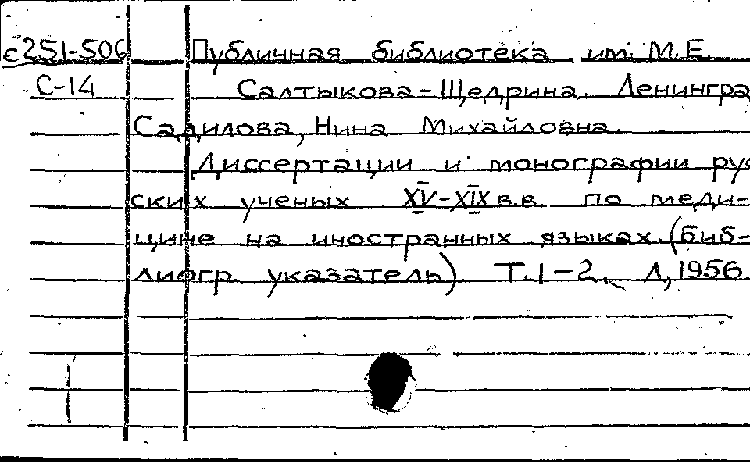 с251-506 Публичная библиотека им. М.Е.
С-14 Салтыкова-Щедрина. Ленингра
Садилова, Нина Михайловна.
Диссертации и монографии рус
ских ученых XV-XIX в.в. по меди-
цине на иностранных языках (биб-
лиогр. указатель) Т.1-2. Л, 1956